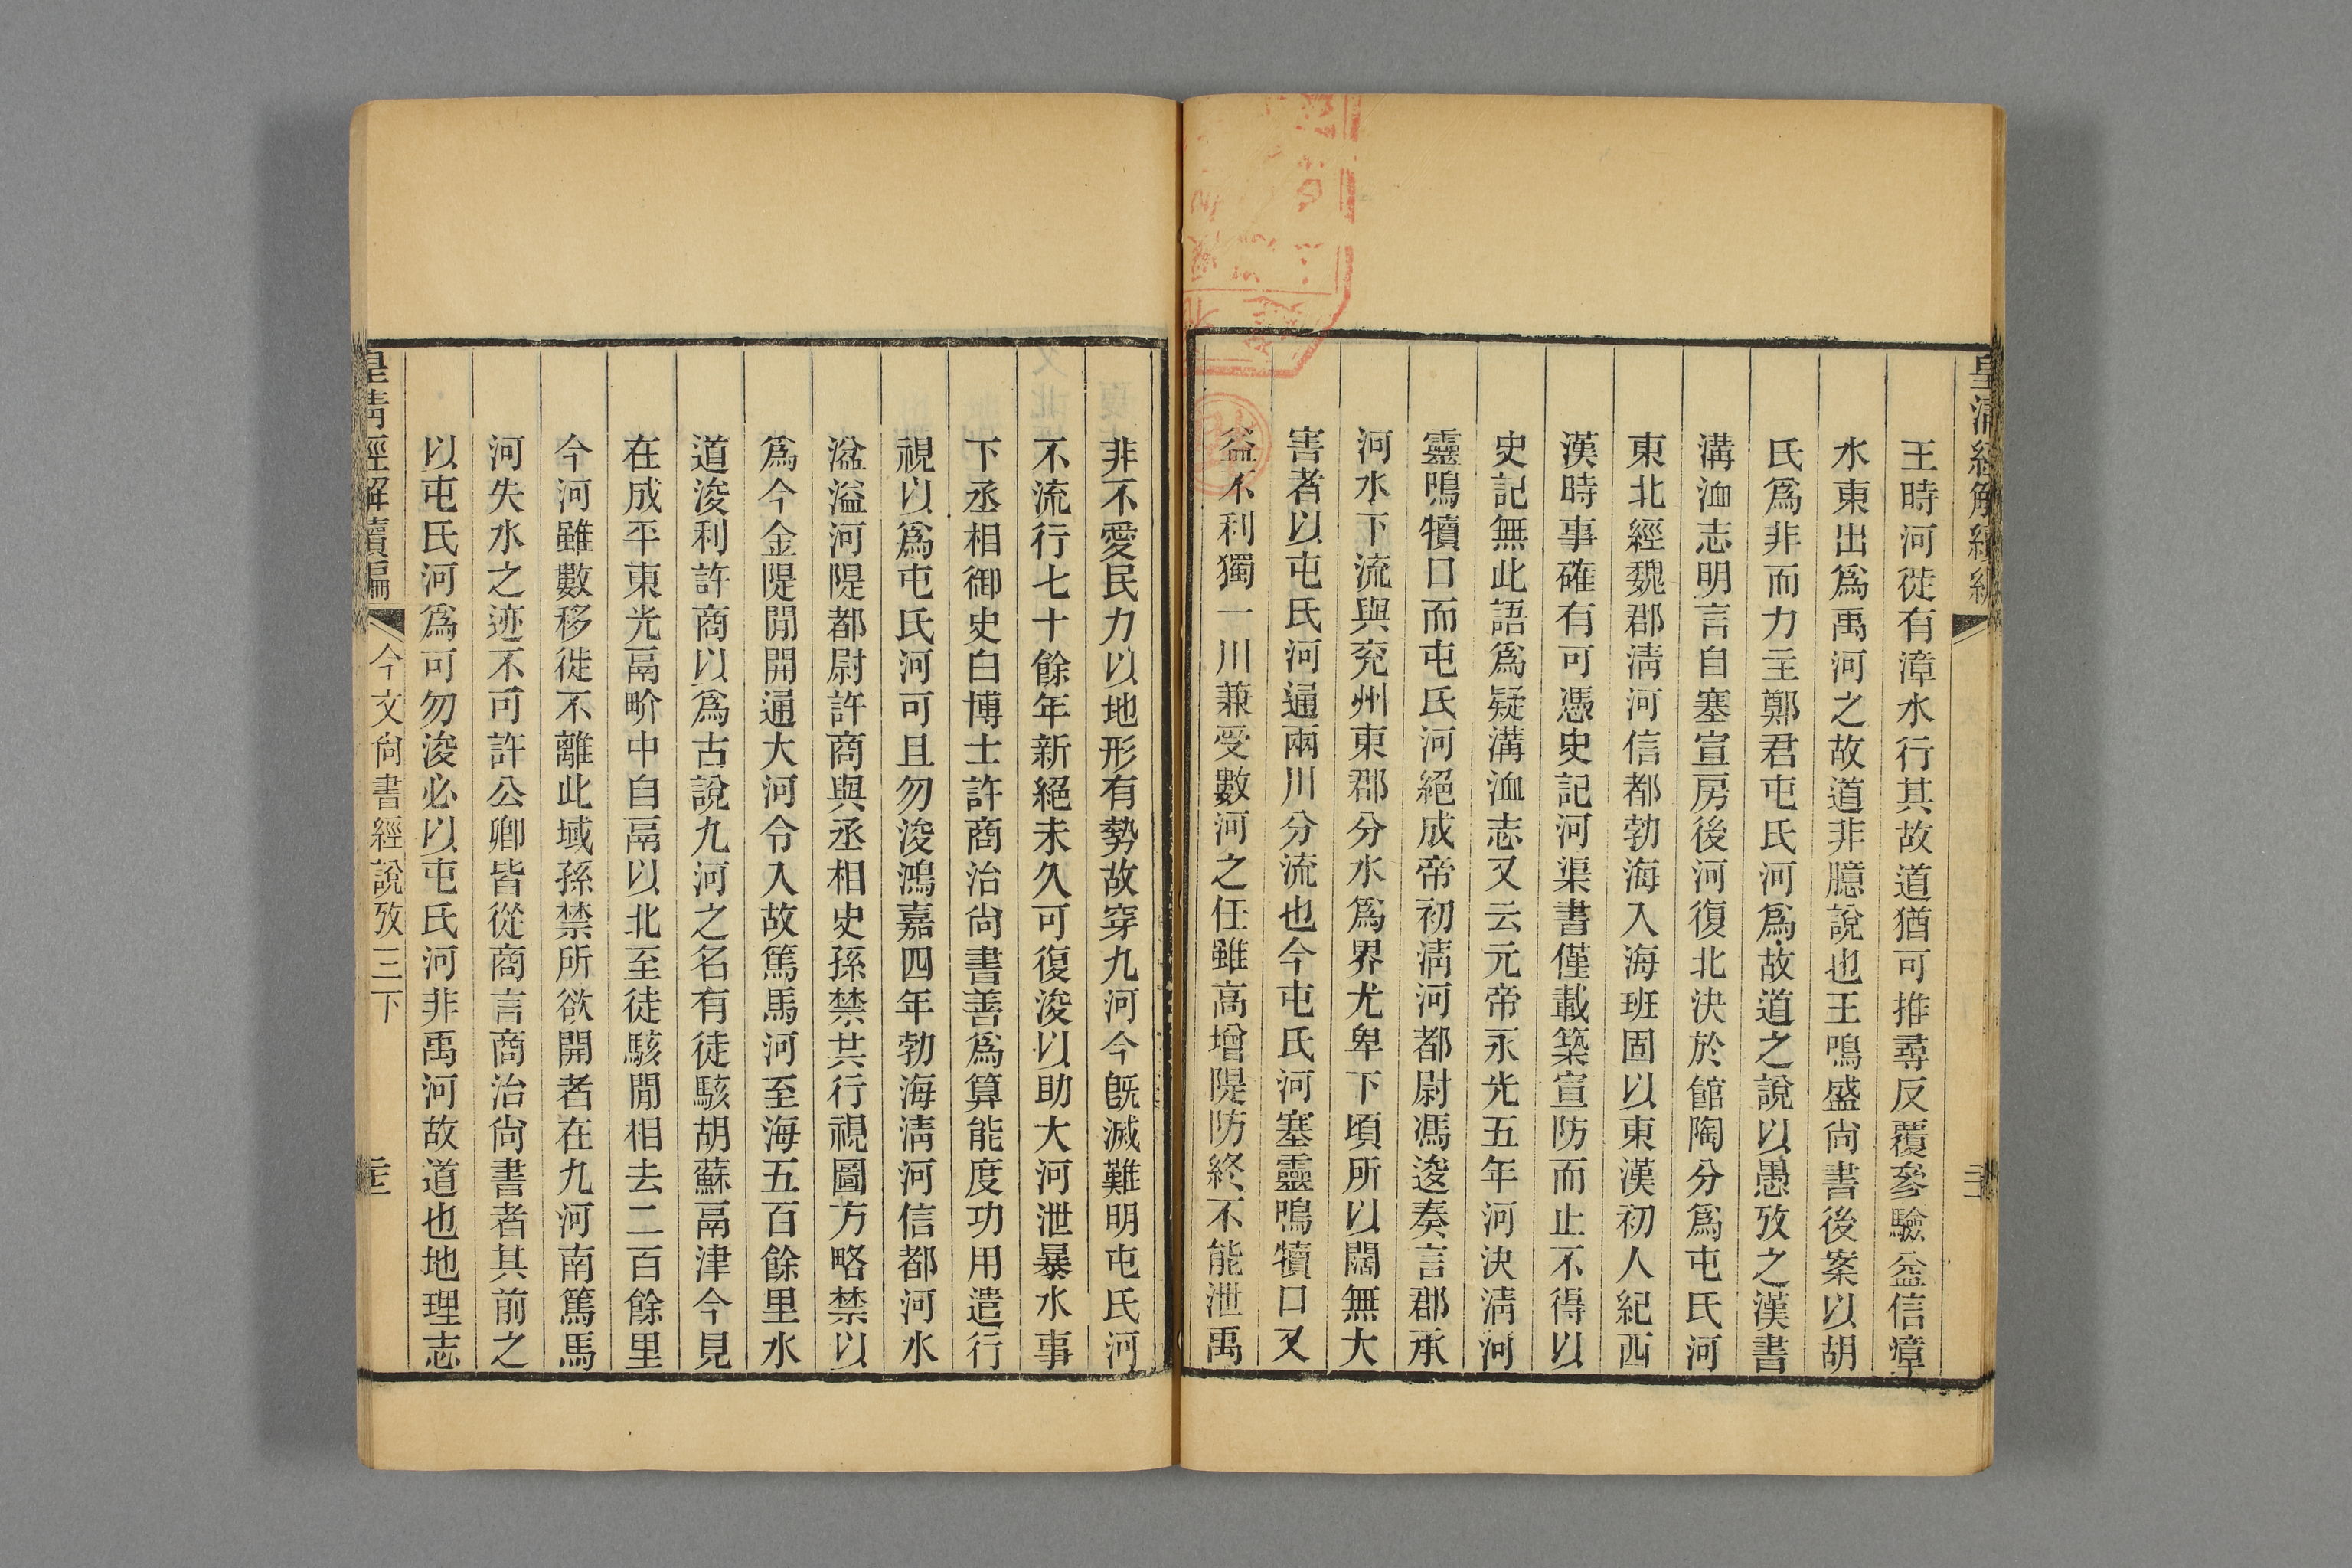 皇清經解續編
王時河徙有漳水行其故道猶可推尋反覆參驗益信漳
水東出爲禹河之故道非臆說也王鳴盛尙書後案以胡
氏爲非而力主鄭君屯氏河爲故道之說以愚攷之漢書
溝洫志明言自塞宣房後河復北決於館陶分爲屯氏河
東北經魏郡淸河信都勃海入海班固以東漢初人紀西
漢時事確有可憑史記河渠書僅載築宣防而止不得以
史記無此語爲疑溝洫志又云元帝永光五年河決淸河
靈鳴犢口而屯氏河絕成帝初淸河都尉馮逡奏言郡承
河水下流與兖州東郡分水爲界尤卑下頃所以闊無大
害者以屯氏河通兩川分流也今屯氏河塞靈鳴犢口又
益不利獨一川兼受數河之任雖高增隄防終不能泄禹
非不愛民力以地形有勢故穿九河今旣滅難明屯氏河
不流行七十餘年新絕未久可復浚以助大河泄暴水事
下丞相御史白博士許商治尙書善爲算能度功用遣行
視以爲屯氏河可且勿浚鴻嘉四年勃海淸河信都河水
湓溢河隄都尉許商與丞相史孫禁共行視圖方略禁以
爲今金隄閒開通大河令入故篤馬河至海五百餘里水
道浚利許商以爲古說九河之名有徒駭胡蘇鬲津今見
在成平東光鬲畍中自鬲以北至徒駭閒相去二百餘里
今河雖數移徙不離此域孫禁所欲開者在九河南篤馬
河失水之迹不可許公卿皆從商言商治尙書者其前之
以屯氏河爲可勿浚必以屯氏河非禹河故道也地理志
皇清經解續編 今文尙書經說攷三下